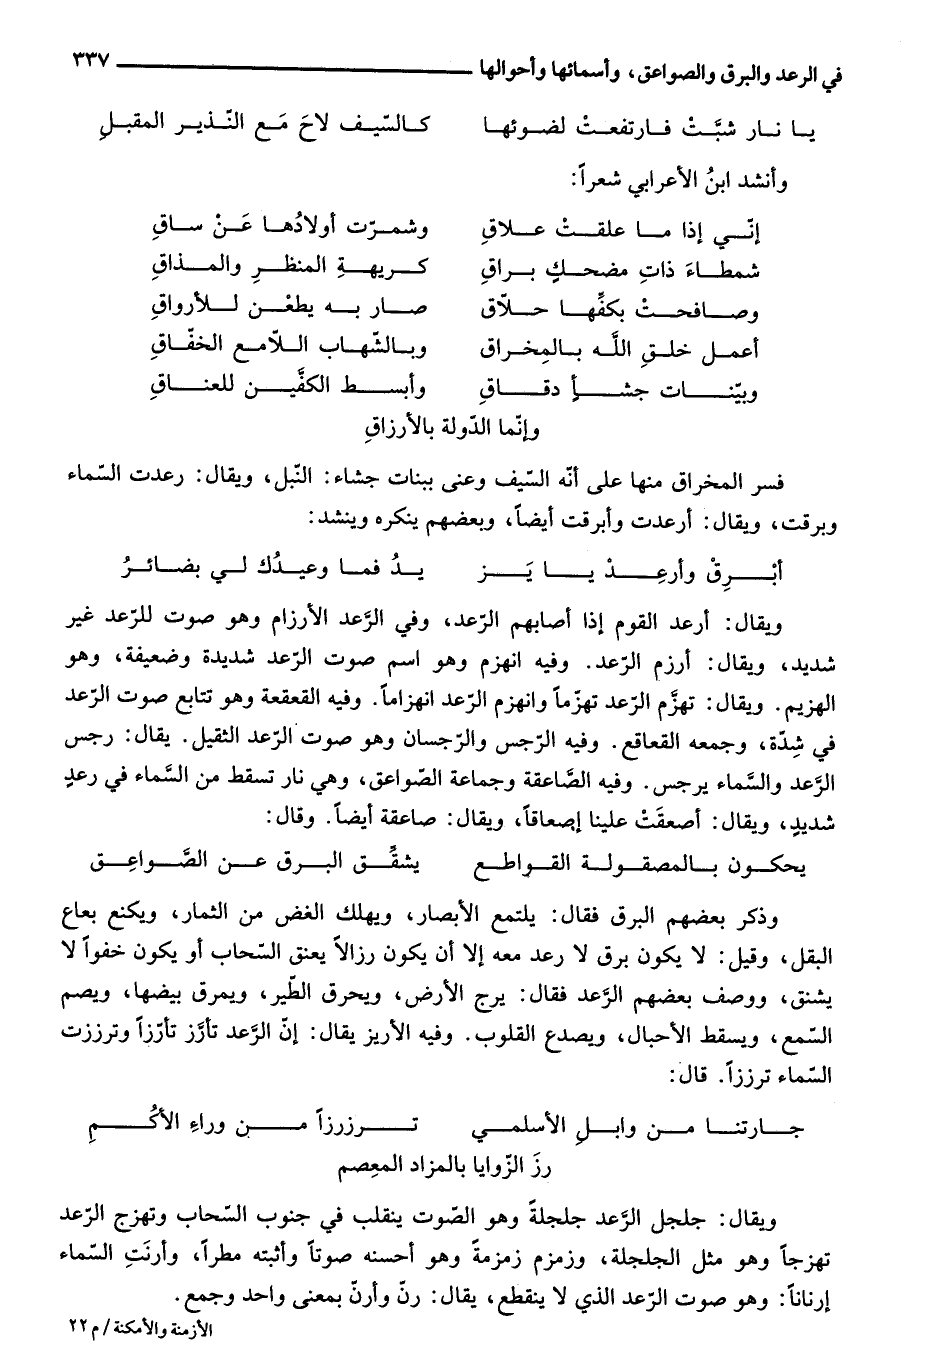 في الرعد والبرق والصواعق، وأسمائها وأحوالها ٣٣٧
يا نار شبَّتْ فارتفعتْ لضوئها كالسّيف لاحَ مَع النّذير المقبلِ
وأنشد ابنُ الأعرابي شعراً:
إنّي إذا ما علقتْ علاقِ وشمرّت أولادُها عَنْ ساقِ
شمطاءَ ذاتِ مضحكٍ براقِ كريهةِ المنظرِ والمذاقِ
وصافحتْ بكفِّها حلّاق صار به يطعْن للأرواقِ
أعمل خلقِ اللَّه بالمِخراق وبالشّهاب اللّامع الخفّاقِ
وبيّنات جشأ دقاقِ وأبسط الكفَّين للعناقِ
وإنّما الدّولة بالأرزاقِ
فسر المخراق منها على أنّه السّيف وعنى ببنات جشاء: النّبل، ويقال: رعدت السّماء
وبرقت، ويقال: أرعدت وأبرقت أيضاً، وبعضهم ينكره وينشد:
أبْرِقْ وأرعِدْ يا يَز يدُ فما وعيدُك لي بضائرُ
ويقال: أرعد القوم إذا أصابهم الرّعد، وفي الرَّعد الأرزام وهو صوت للرّعد غير
شديد، ويقال: أرزم الرّعد. وفيه انهزم وهو اسم صوت الرّعد شديدة وضعيفة، وهو
الهزيم. ويقال: تهزَّم الرّعد تهزّماً وانهزم الرّعد انهزاماً. وفيه القعقعة وهو تتابع صوت الرّعد
في شِدّة، وجمعه القعاقع. وفيه الرّجس والرّجسان وهو صوت الرّعد الثقيل. يقال: رجس
الرَّعد والسَّماء يرجس. وفيه الصَّاعقة وجماعة الصّواعق، وهي نار تسقط من السَّماء في رعدٍ
شديدٍ، ويقال: أصعقَتْ علينا إصعاقاً، ويقال: صاعقة أيضاً. وقال:
يحكون بالمصقولة القواطع يشقَّق البرق عن الصَّواعِق
وذكر بعضهم البرق فقال: يلتمع الأبصار، ويهلك الغض من الثمار، ويكنع بعاع
البقل، وقيل: لا يكون برق لا رعد معه إلا أن يكون رزالاً يعنق السّحاب أو يكون خفواً لا
يشنق، ووصف بعضهم الرَّعد فقال: يرج الأرض، ويحرق الطّير، ويمرق بيضها، ويصم
السّمع، ويسقط الأحبال، ويصدع القلوب. وفيه الأريز يقال: إنّ الرَّعد تأرَّز تأرّزاً وترززت
السّماء ترززاً. قال:
جارتنا من وابلِ الأسلمي ترزرزاً من وراءِ الأكُمِ
رزَ الرّوايا بالمزاد المعِصم
ويقال: جلجل الرَّعد جلجلةً وهو الصّوت ينقلب في جنوب السّحاب وتهزج الرّعد
تهزجاً وهو مثل الجلجلة، وزمزم زمزمةً وهو أحسنه صوتاً وأثبته مطراً، وأرنَتِ السَّماء
إرناناً: وهو صوت الرّعد الذي لا ينقطع، يقال: رنّ وأرنّ بمعنى واحد وجمع.
الأزمنة والأمكنة/ م٢٢